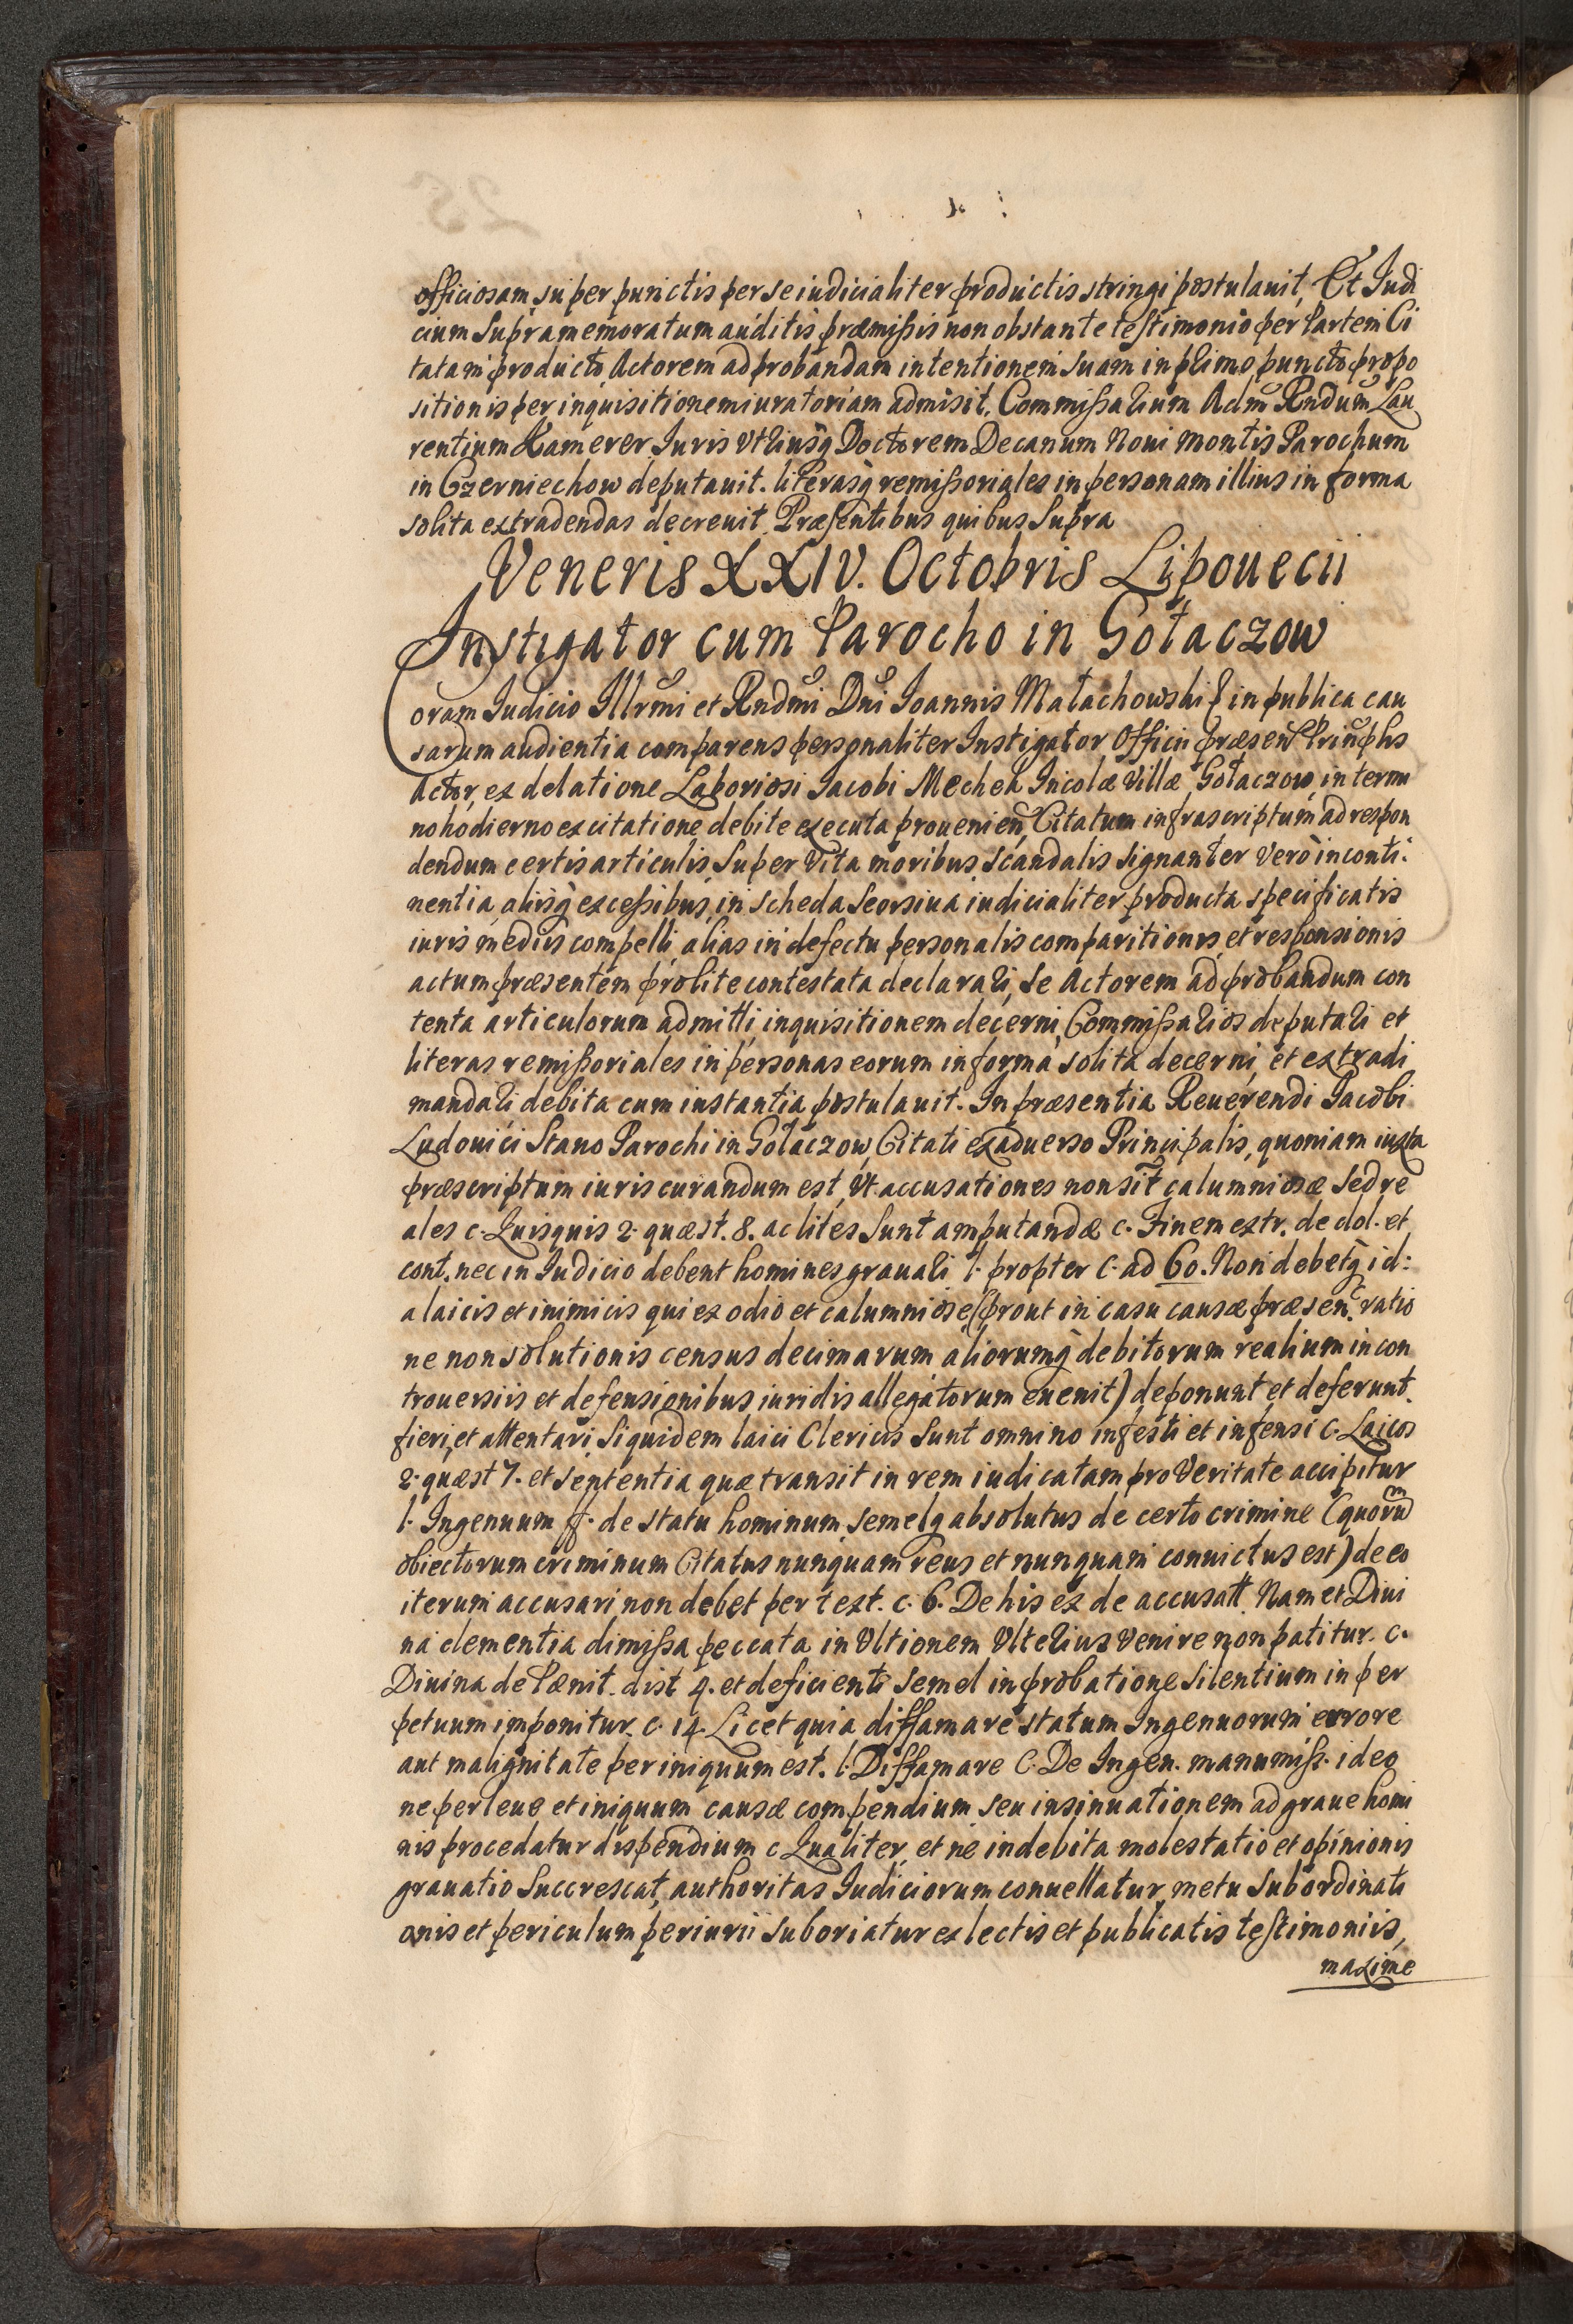 officiosam super punctis per se iudicialiter productis stringi postulauit, Et Judi
cium supramemoratum auditis præmissis non obstante testimonio per Partem Ci
tatam producto, Actorem ad probandam intentionem suam in primo puncto propo
sitionis per inquisitionem iuratoriam admisit. Commissarium Adm Rndum Lau
rentium Kamerer Juris Vtriusq Doctorem Decanum Noui Montis Parochum
in Czerniechow deputauit. literasq remissoriales in personam illius in forma
solita extradendas decreuit. Præsentibus quibus supra
Veneris XXIV. Octobris Lipouecii
Instigator cum Parocho in Gołaczow
Coram Judicio Illrmi et Rndmi Dni Joannis Małachowski in publica cau
sarum audientia comparens personaliter Instigator Officii præsen Prinphs
Actor, ex delatione Laboriosi Jacobi Mecheł Incolæ Villæ Gołaczow, in termi
no hodierno ex citatione debite executa prouenien, Citatum infrascriptum ad respon
dendum certis articulis super Vita moribus scandalis signanter Vero inconti:
nentia, aliisq excessibus in scheda seorsiua iudicialiter producta specificatis
iuris mediis compelli, alias in defectu personalis comparitionis et responsionis
actum præsentem pro lite contestata declarari, se Actorem ad probandum con
tenta articulorum admitti, inquisitionem decerni, Commissarios deputari et
literas remissoriales in personas eorum in forma solita decerni, et extradi
mandari debita cum instantia postulauit. In præsentia Reuerendi Jacobi
Ludouici Stano Parochi in Gołaczow, Citati ex aduerso Principalis, quoniam iuxta
præscriptum iuris curandum est, Vt accusationes non sit calumniosæ, sed re
ales c. Quisquis 2. quæst. 8. ac lites sunt amputandæ c. Finem extr. de dol. et
cont. nec in Judicio debent homines grauari l. propter C. ad 60. Non debetq id:
a laicis et inimicis qui ex odio et calumniose (prout in casu causæ præsen. ratio
ne non solutionis census decimarum aliorumq debitorum realium in con
trouersiis et defensionibus iuridis allegatorum euenit) deponunt et deferunt
fieri, et attentari siquidem laici Clericis sunt omnino infesti et infensi c. Laicos
2. quæst 7. et sententia quæ transit in rem iudicatam pro Veritate accipitur
l. Ingenuum ff. de statu hominum, semelq absolutus de certo crimine (quorum
obiectorum criminum Citatus nunquam reus et nunquam conuictus est) de eo
iterum accusari non debet per text. c. 6. De his ex de accusatt. Nam et Diui
na clementia dimissa peccata in Vltionem Vlterius Venire non patitur. c.
Diuina de Pænit. dist 4. et deficienti semel in probatione silentium in per
petuum imponitur. c. 14. Licet quia diffamare statum Ingenuorum errore
aut malignitate periniquum est. l. Diffamare C. De Ingen. manumiss. ideo
ne per leue et iniquum causæ compendium, seu insinuationem ad graue homi
nis procedatur dispendium c Qualiter, et ne indebita molestatio et opinionis
grauatio succrescat, authoritas Judiciorum conuellatur, metu subordinati
onis et periculum periurii suboriatur ex lectis et publicatis testimoniis,
maxime